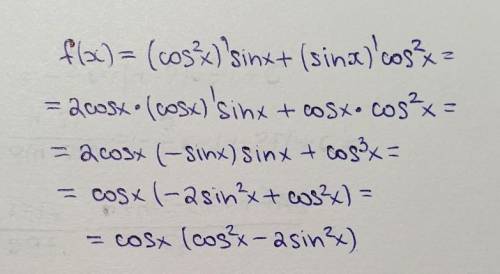 f(x) = (cos²x)' sinx + (sinx)' cos²x =
= 2cosx • (cosx)' sinx + cosx • cos²x =
= 2cosx (-sinx) sinx + cos³x =
= cosx (-2sin²x + cos²x) =
= cosx (cos²x - 2sin²x)